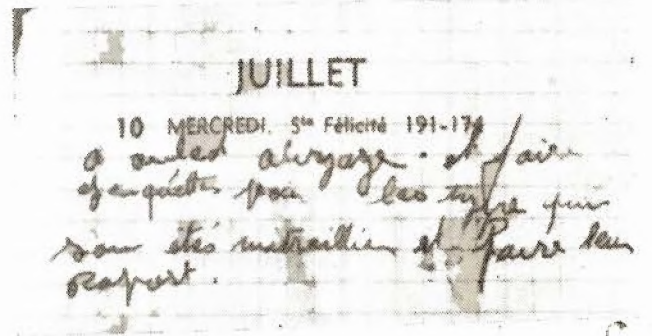 JUILLET
10 MERCREDI. Ste Félicité 191-174
a ouled et faire
enquête pour les type qui
son étés mitraillier et Faire leur
Raport.